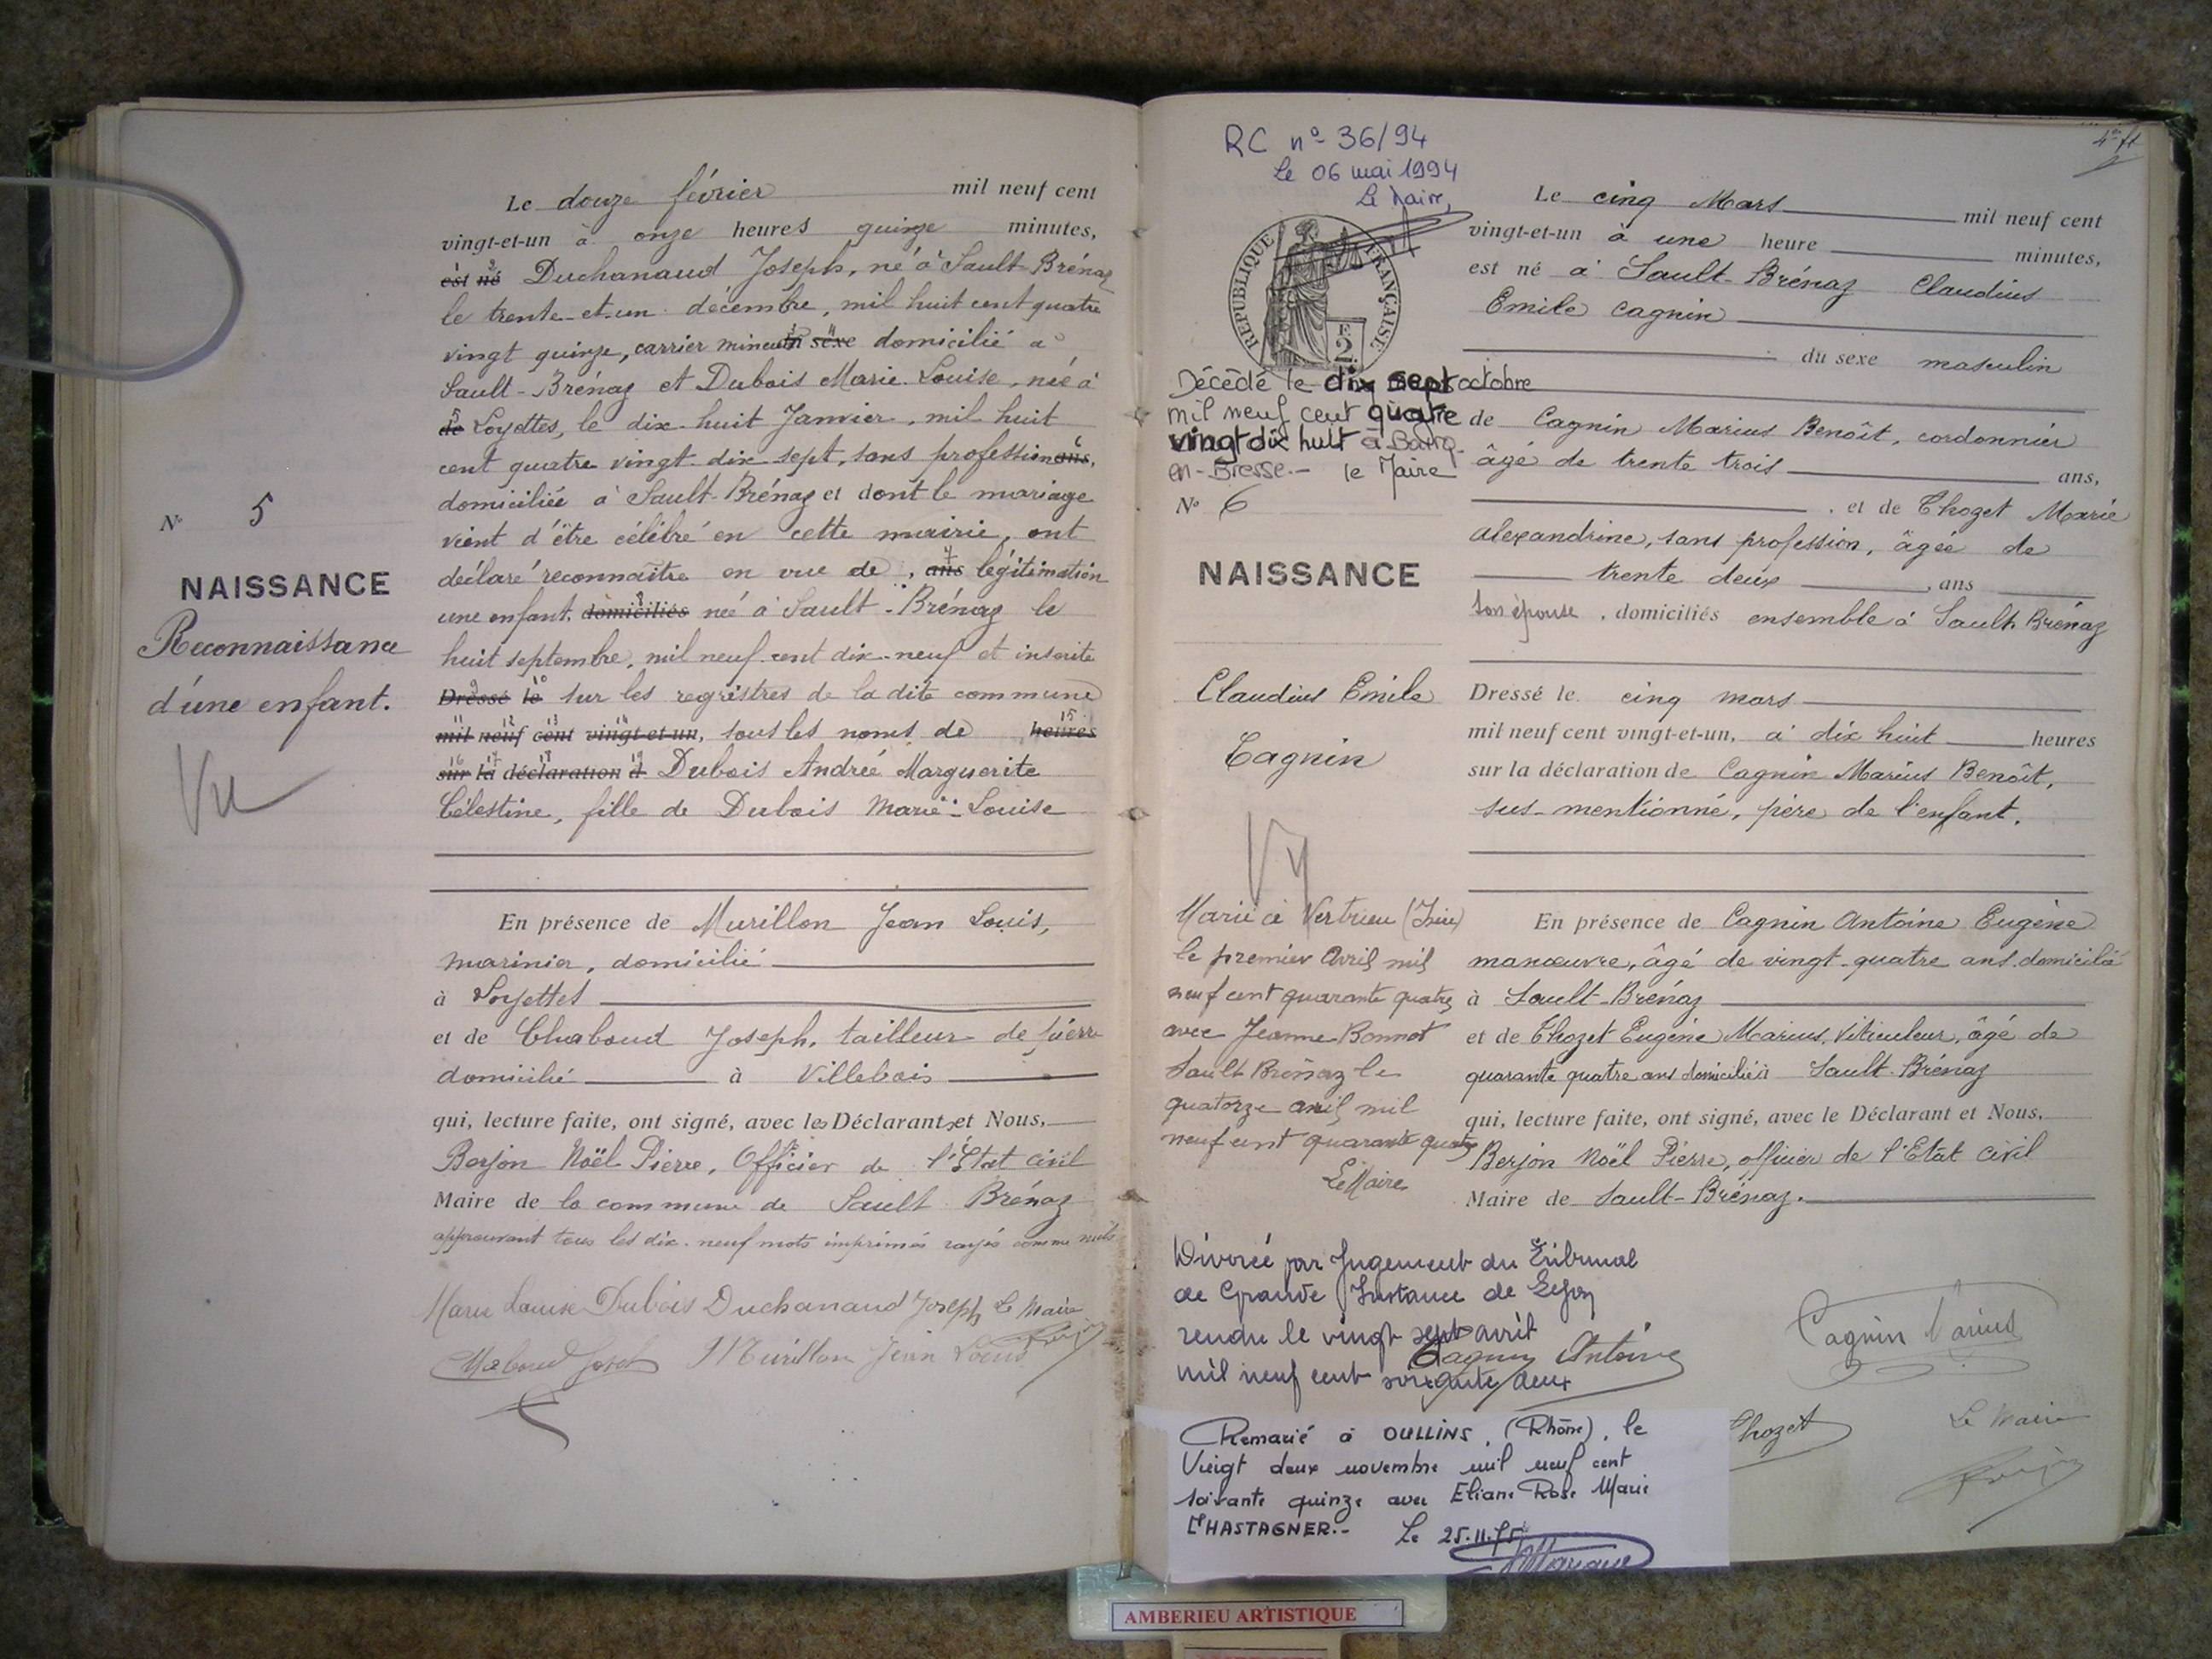 Le douze février mil neuf cent
vingt-et-un à onze heures quinze minutes,
est né Duchanaud Joseph, né à Sault-Brénaz
le trente-et-un décembre, mil huit cent quatre
vingt quinze, carrier mineur du sexe domicilié à
Sault-Brénaz et Dubois Marie-Louise, née à
de Loyettes, le dix-huit Janvier, mil huit
cent quatre vingt dix sept, sans profession ans,
domiciliée à Sault-Brénaz et dont le mariage
vient d'être célébré en cette mairie, ont
déclaré reconnaitre en vue de, ans légitimation
une enfant, domiciliés née à Sault-Brénaz le
huit septembre, mil neuf cent dix-neuf et inscrite
Dressé le sur les registres de la dite commune
mil neuf cent vingt-et-un, sous les noms de heures
sur la déclaration d Dubois Andrée Marguerite
Célestine, fille de Dubois Marie-Louise
N° 5
NAISSANCE
Reconnaissance
d'une enfant.
Vu
En présence de Murillon Jean Louis,
marinier, domicilié
à Loyettes
et de Chaboud Joseph, tailleur de pierre
domicilié à Villebois
qui, lecture faite, ont signé, avec les Déclarants et Nous,
Berjon Noël Pierre, Officier de l'Etat civil
Maire de la commune de Sault-Brénaz
approuvant tous les dix-neuf mots imprimés rayés comme nuls
Marie Louise Dubois Duchanaud Joseph Le Maire
Chaboud Joseph Murillon Jean Louis
RC n° 36/94
Le 06 mai 1994
Le Maire,
RÉPUBLIQUE FRANÇAISE
2
Décédé le dix sept octobre
mil neuf cent quatre
vingt dix huit à Bourg-
en-Bresse.- le Maire
N° 6
NAISSANCE
Claudius Emile
Cagnin
Vu
Marié à Vertrieu (Isère)
le premier Avril mil
neuf cent quarante quatre
avec Jeanne Bonnot
Sault Brénaz le
quatorze avril mil
neuf cent quarante quatre
Le Maire
Divorcé par Jugement du Tribunal
de Grande Instance de Lyon
rendu le vingt sept avril
mil neuf cent soixante deux
Remarié à OULLINS, (Rhône), le
Vingt deux novembre mil neuf cent
soixante quinze avec Eliane Rose Marie
CHASTAGNER.- Le 25.11.75
Le cinq Mars mil neuf cent
vingt-et-un à une heure minutes,
est né à Sault-Brénaz Claudius
Emile Cagnin
du sexe masculin
de Cagnin Marius Benoît, cordonnier
âgé de trente trois ans,
, et de Thozet Marie
Alexandrine, sans profession, âgée de
trente deux, ans
son épouse, domiciliés ensemble à Sault-Brénaz
Dressé le cinq mars
mil neuf cent vingt-et-un, à dix huit heures
sur la déclaration de Cagnin Marius Benoît,
sus-mentionné, père de l'enfant.
En présence de Cagnin Antoine Eugène
manœuvre, âgé de vingt-quatre ans domicilié
à Sault-Brénaz
et de Thozet Eugène Marius, Viticulteur, âgé de
quarante quatre ans domicilié à Sault-Brénaz
qui, lecture faite, ont signé, avec le Déclarant et Nous,
Berjon Noël Pierre, officier de l'Etat civil
Maire de Sault-Brénaz.
Cagnin Marius
Cagnin Antoine
Thozet
Le Maire
AMBERIEU ARTISTIQUE